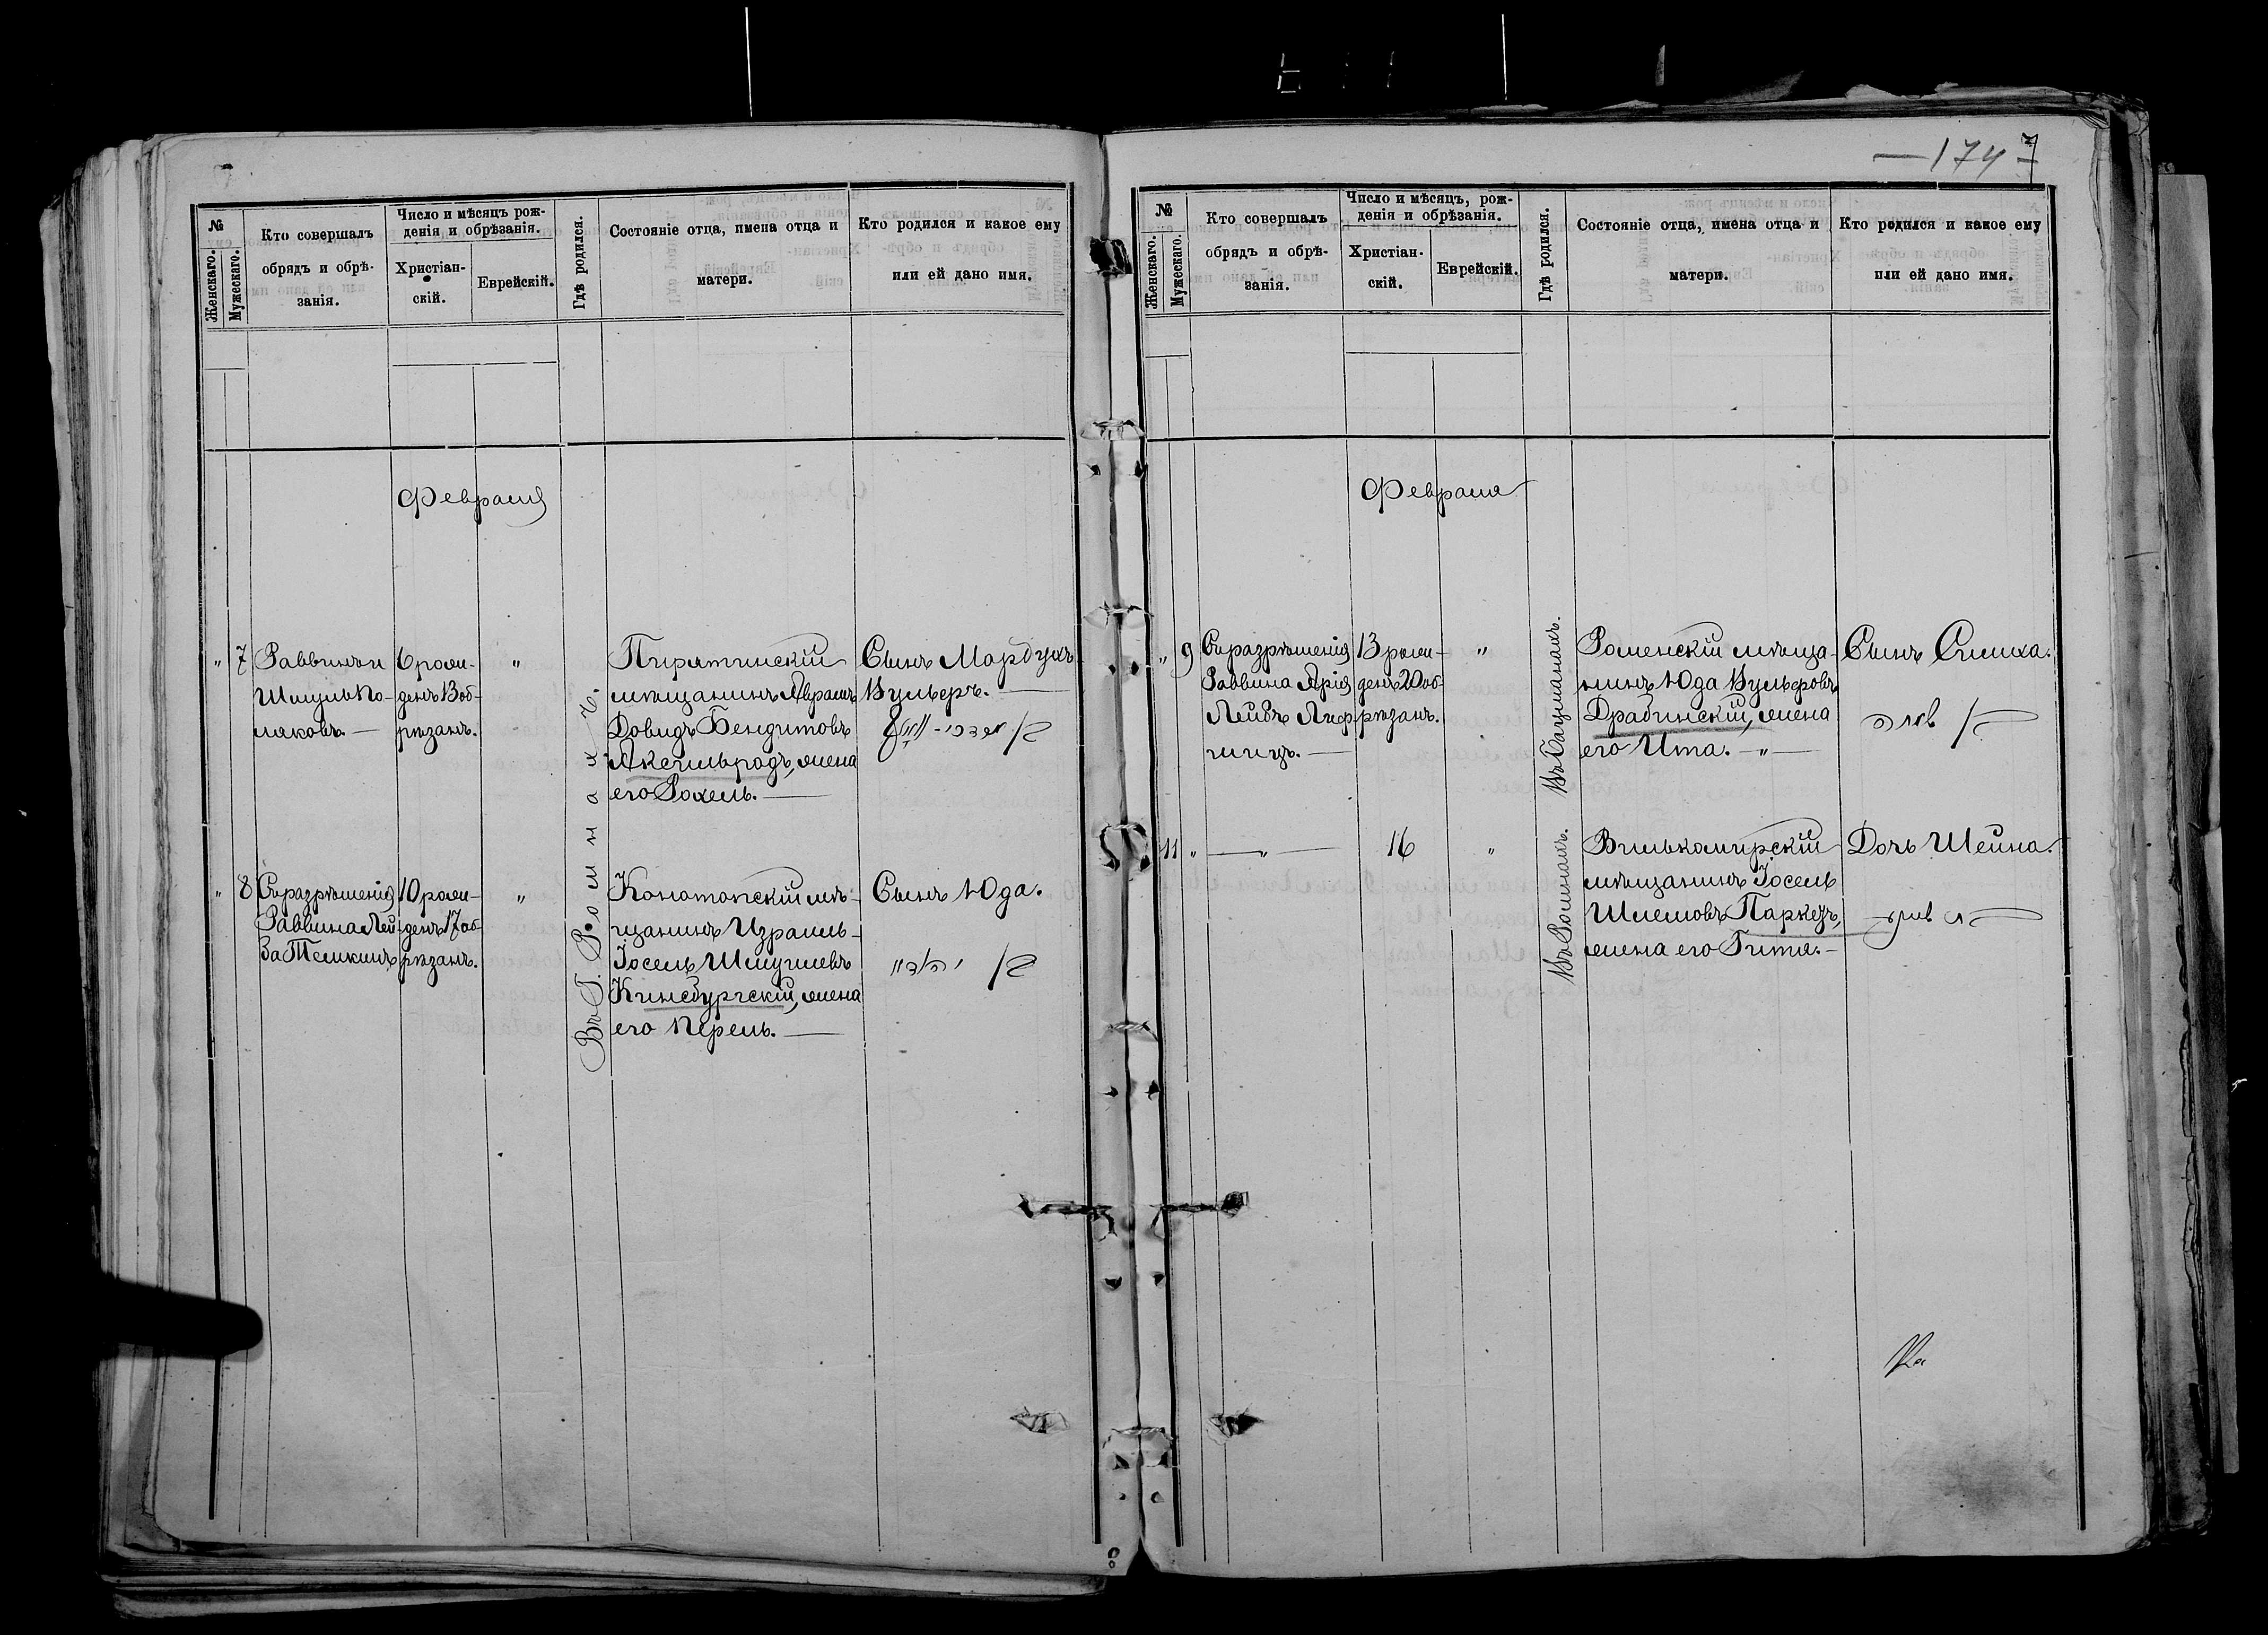 — 174 —
7
№
Женскаго.
Мужескаго.
Кто совершалъ
обрядъ и обрѣ-
занія.
Число и мѣсяцъ рож-
денія и обрѣзанія.
Христіан-
скій.
Еврейскій.
Гдѣ родился.
Состояніе отца, имена отца и
матери.
Кто родился и какое ему
или ей дано имя.
Февраля
" 7
Раввинъ и
Шмуль По-
ляковъ. —
6 рож-
денъ 13 об-
рѣзанъ.
"
Въ Г. Ромнахъ.
Пирятинскій
мѣщанинъ Аврамъ
Довидъ Бендитовъ
Аксельродъ, жена
его Рохель. —
Сынъ Мордухъ
Вульеръ. —
" 8
Съ разрѣшенія
Раввина Лей-
ба Темкинъ
10 рож-
денъ 17 об-
рѣзанъ.
"
Конотопскій мѣ-
щанинъ Израиль-
Іосель Шмуилевъ
Кинсбургскій, жена
его Перель. —
Сынъ Юда.
יהודה
№
Женскаго.
Мужескаго.
Кто совершалъ
обрядъ и обрѣ-
занія.
Число и мѣсяцъ, рож-
денія и обрѣзанія.
Христіан-
скій.
Еврейскій.
Гдѣ родился.
Состояніе отца, имена отца и
матери.
Кто родился и какое ему
или ей дано имя.
Февраля
" 9
Съ разрѣшенія
Раввина Арія
Лейбъ Лиф-
шицъ. —
13 рож-
денъ 20 об-
рѣзанъ.
"
Роменскій мѣща-
нинъ Юда Вульфовъ
Драбинскій, жена
его Ита. — " —
Сынъ Симха.
11 "
— " —
16
"
Въ Ромнахъ.
Вилькомирскій
мѣщанинъ Іосель
Шлемовъ Паркецъ,
жена его Гитя. —
Дочь Шейна.